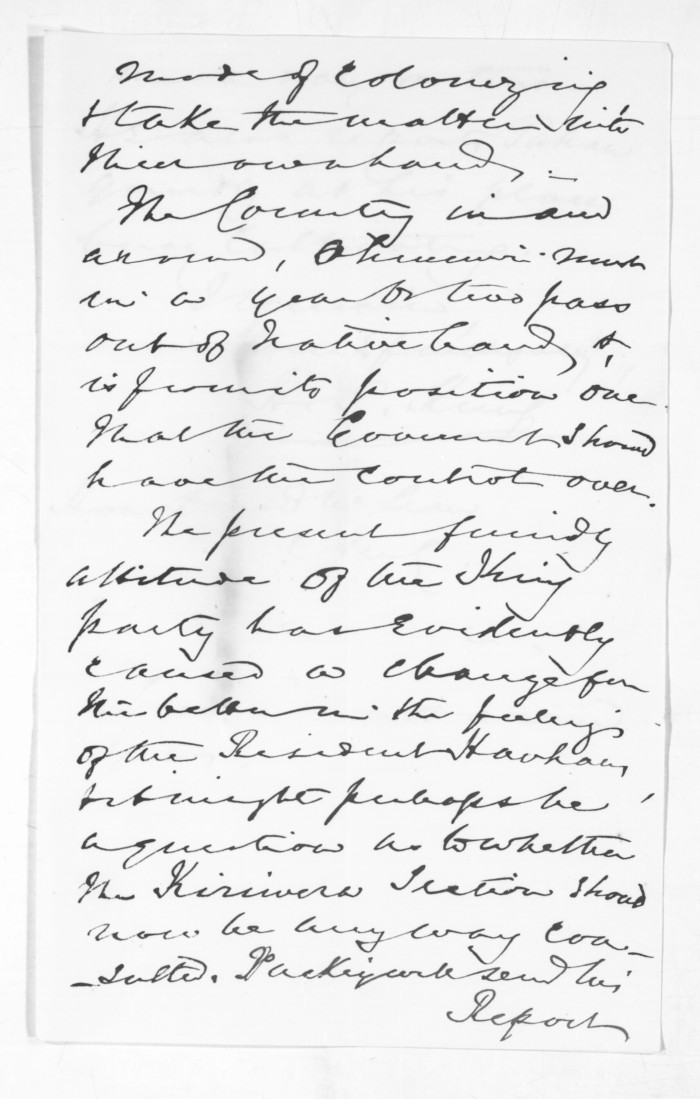 mode of colonizing
& take the matter into
their own hands, _
The Country in and
around, Ohinemuri must
in a year or two pass
out of Native hands, &
is from its position one
that the Government should
have the control over.
The present friendly
attitude of the King
party has evidently
caused a change for
the better in the feelings
of the Resident Hauhaus,
& it might perhaps be
a question as to whether
the Kiriwera Section should
now be any way con_
_sulted. Mackay will send his
Report